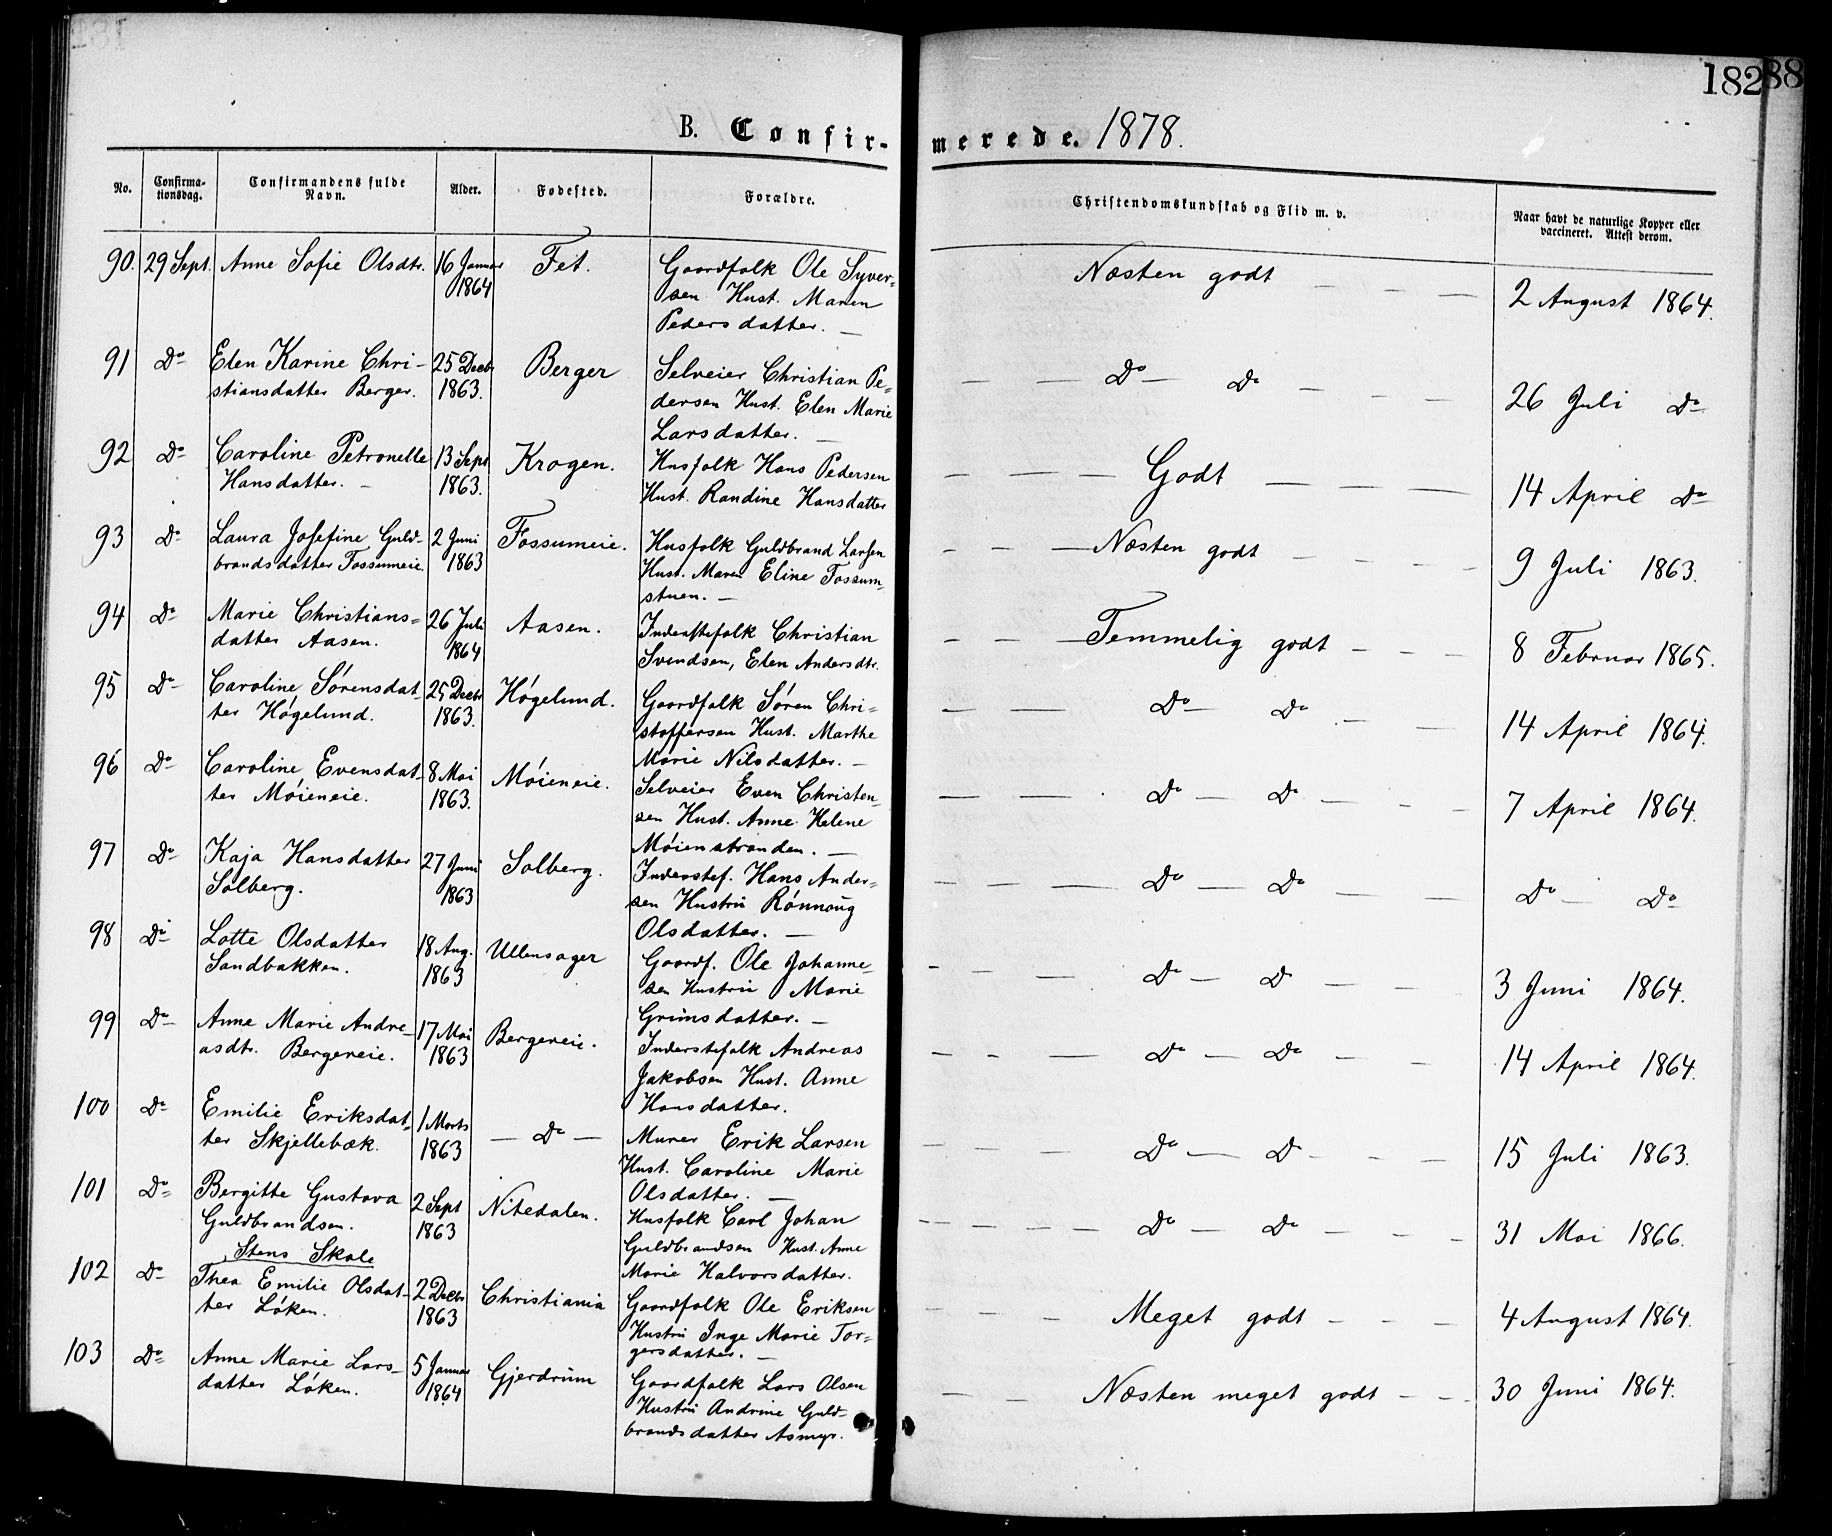 182 88
B. Confir- merede. 1878.
No. | Confirma-tionsdag. | Confirmandens fulde Navn. | Alder. | Fødested. | Forældre. | Christendomskundskab og Flid m. v. | Naar havt de naturlige Kopper eller vaccineret. Attest derom.
90. 29 Sept. Anne Sofie Olsdtr. 16 Januar Fet. Gaardfolk Ole Syver- Næsten godt — — —
1864 sen Hust. Maren 2 August 1864.
Pedersdatter. —
91 Do Elen Karine Chri- 25 Decb Berger Selveier Christian Pe- — — Do — Do — — —
stiansdatter Berger. 1863. dersen Hust. Elen Marie 26 Juli Do
Larsdatter. —
92 Do Caroline Petronelle 13 Sept Krogen. Husfolk Hans Pedersen — — — Godt — — — —
Hansdatter. — 1863. Hust. Randine Hansdatter 14 April Do
93 Do Laura Josefine Guld- 2 Juni Fossumeie. Husfolk Guldbrand Larsen — — — Næsten godt — — — —
brandsdatter Fossumeie 1863 Hust. Maren Eline Fossum- 9 Juli 1863.
stuen. —
94 Do Marie Christians= 26 Juli Aasen. Inderstefolk Christian — — — Temmelig godt — — —
datter Aasen. 1864 Svendsen, Elen Andersdtr. 8 Februar 1865.
95 Do Caroline Sørensdat- 25 Decbr Høgelund. Gaardfolk Søren Chri= — — Do — Do — — —
ter Høgelund. 1863. stoffersen Hust. Marthe 14 April 1864.
Marie Nilsdatter. —
96 Do Caroline Evensdat- 8 Mai Møieneie. Selveier Even Christen- — — Do — Do — — —
ter Møieneie. 1863. sen Hust. Anne Helene 7 April 1864.
Møienstranden. —
97 Do Kaja Hansdatter 27 Juni Solberg. Inderstef. Hans Ander= — — — Do — Do — — —
Solberg. 1863 sen Hustru Rønnoug Do — Do
Olsdatter. —
98 Do Lotte Olsdatter 18 Aug. Ullensager Gaardf. Ole Johanne- — — — Do — Do — — —
Sandbakken. 1863 sen Hustru Marie 3 Juni 1864.
Grimsdatter. —
99 Do Anne Marie Andre- 17 Mai Bergereie. Inderstefolk Andreas — — — Do — Do — —
asdtr. Bergereie. 1863 Jakobsen Hust. Anne 14 April 1864.
Hansdatter.
100 Do Emilie Eriksdat- 1 Marts — Do — Murer Erik Larsen — — — Do — Do — — —
ter Skjellebæk. 1863 Hust. Caroline Marie 15 Juli 1863.
Olsdatter. —
101 Do Bergitte Gustava 2 Sept Nitedalen. Husfolk Carl Johan — — — — Do — Do — — — —
Guldbrandsen. 1863 Guldbrandsen Hust. Anne 31 Mai 1866.
Stens Skole Marie Halvorsdatter.
102 Do Thea Emilie Olsdat- 2 Decbr Christiania Gaardfolk Ole Eriksen — — — Meget godt — — — 4 August 1864.
ter Løken. 1863 Hustru Inge Marie Tor=
gersdatter. —
103 Do Anne Marie Lars- 5 Januar Gjerdrum Gaardfolk Lars Olsen — — Næsten meget godt — — — 30 Juni 1864.
datter Løken. 1864 Hustru Andrine Guld-
brandsdatter Asmyr.